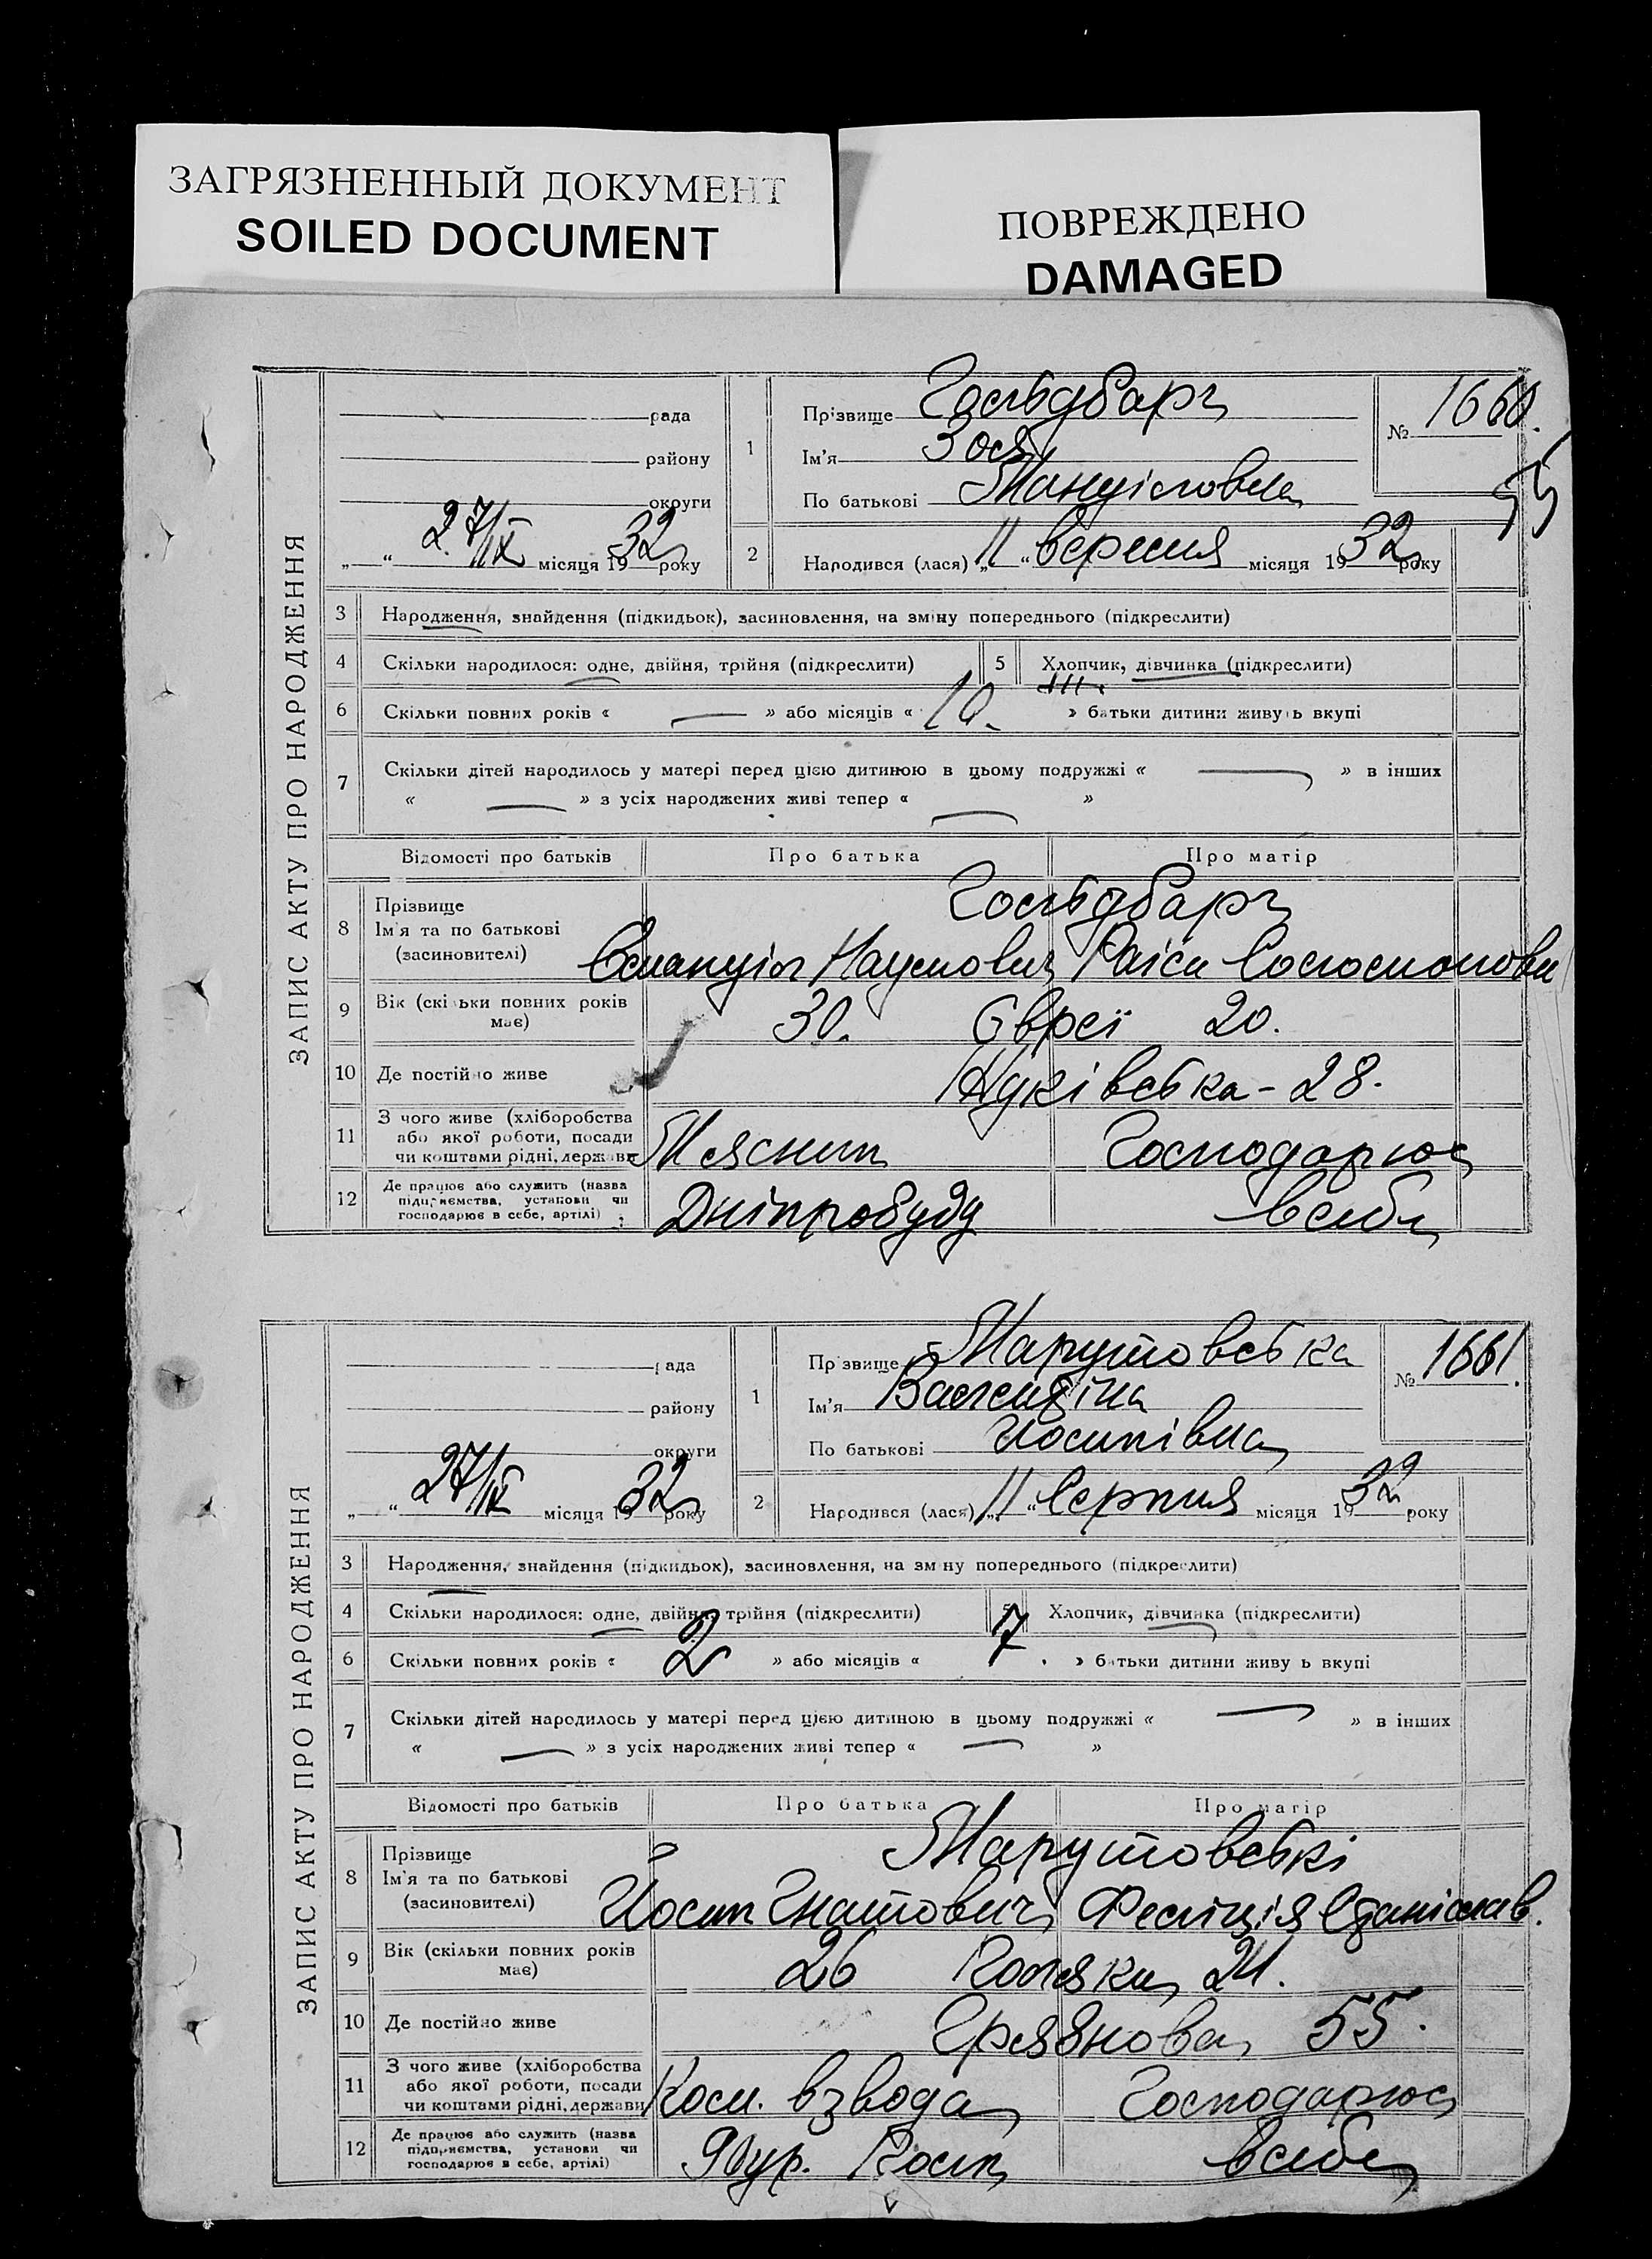 ЗАГРЯЗНЕННЫЙ ДОКУМЕНТ
SOILED DOCUMENT
ПОВРЕЖДЕНО
DAMAGED
ЗАПИС АКТУ ПРО НАРОДЖЕННЯ
рада
району
округи
„ “ 27/IX місяця 1932 року
1
Прізвище Гольдбарг
Ім'я Зоя
По батькові Мануіловна
№ 1660.
55
2 Народився (лася) „11“ вересня місяця 1932 року
3 Народження, знайдення (підкидьок), засиновлення, на зміну попереднього (підкреслити)
4 Скільки народилося: одне, двійня, трійня (підкреслити) 5 Хлопчик, дівчинка (підкреслити)
6 Скільки повних років « — » або місяців « 10. » батьки дитини живуть вкупі
7 Скільки дітей народилось у матері перед цією дитиною в цьому подружжі « — » в інших
« — » з усіх народжених живі тепер « — »
Відомості про батьків Про батька Про матір
8 Прізвище Гольдбарг
Ім'я та по батькові
(засиновителі) Емануіл Наумович Раіса Соломонови
9 Вік (скільки повних років має) 30. Євреї 20.
10 Де постійно живе 28.
11 З чого живе (хліборобства або якої роботи, посади чи коштами рідні, держави Мясник Господарює
12 Де працює або служить (назва підприємства, установи чи господарює в себе, артілі) Дніпробуду в себе
ЗАПИС АКТУ ПРО НАРОДЖЕННЯ
рада
району
округи
„ “ 27/IX місяця 1932 року
1
Прізвище Марутовська
Ім'я Валентіна
По батькові Йосипівна
№ 1661.
2 Народився (лася) „11“ Серпня місяця 1932 року
3 Народження, знайдення (підкидьок), засиновлення, на зміну попереднього (підкреслити)
4 Скільки народилося: одне, двійня, трійня (підкреслити) 5 Хлопчик, дівчинка (підкреслити)
6 Скільки повних років « 2 » або місяців « 7. » батьки дитини живуть вкупі
7 Скільки дітей народилось у матері перед цією дитиною в цьому подружжі « — » в інших
« — » з усіх народжених живі тепер « — »
Відомості про батьків Про батька Про матір
8 Прізвище Марутовські
Ім'я та по батькові
(засиновителі) Йосип Гнатович Феліція Станіслав.
9 Вік (скільки повних років має) 26 Поляки 24.
10 Де постійно живе Грязнова 55.
11 З чого живе (хліборобства або якої роботи, посади чи коштами рідні, держави Ком. взвода Господарює
12 Де працює або служить (назва підприємства, установи чи господарює в себе, артілі) полк в себе